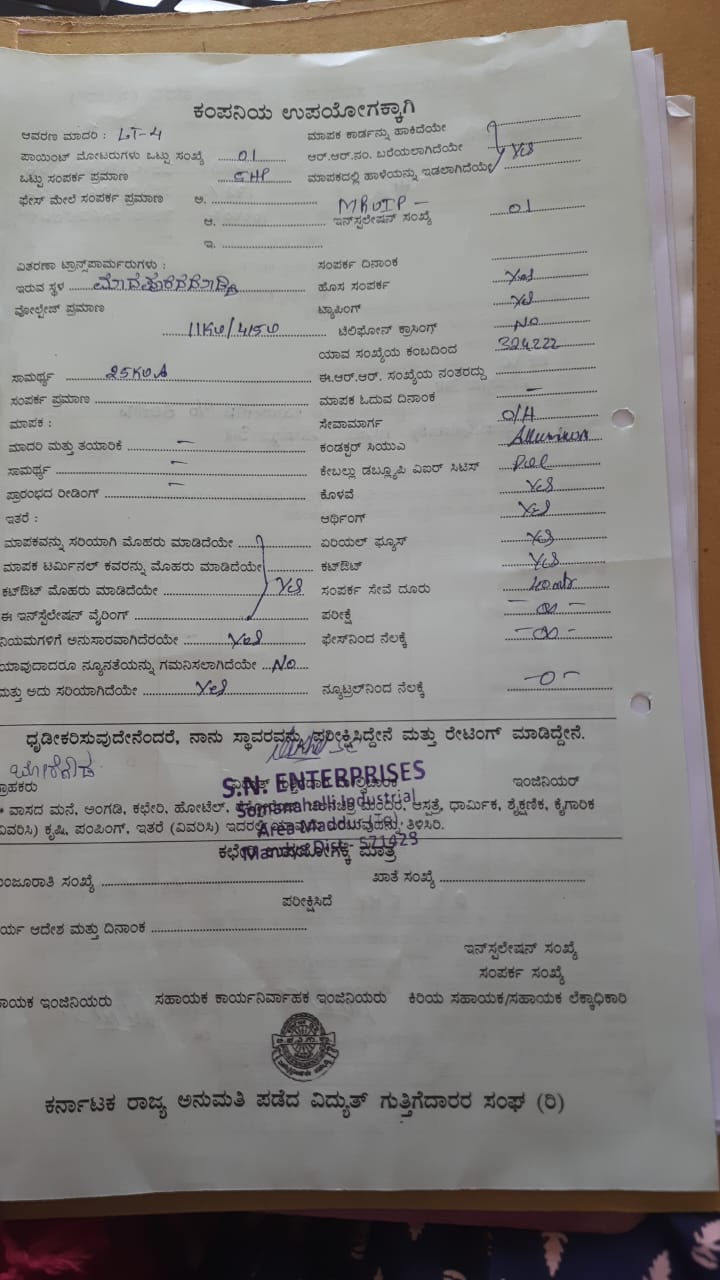 ಕಂಪನಿಯ ಉಪಯೋಗಕ್ಕಾಗಿ
ಆವರಣ ಮಾದರಿ : LT-4 ಮಾಪಕ ಕಾರ್ಡನ್ನು ಹಾಕಿದೆಯೇ
ಪಾಯಿಂಟ್ ಮೋಟರುಗಳು ಒಟ್ಟು ಸಂಖ್ಯೆ 01 ಆರ್.ಆರ್.ನಂ. ಬರೆಯಲಾಗಿದೆಯೇ Yes
ಒಟ್ಟು ಸಂಪರ್ಕ ಪ್ರಮಾಣ 5HP ಮಾಪಕದಲ್ಲಿ ಹಾಳೆಯನ್ನು ಇಡಲಾಗಿದೆಯೇ
ಫೇಸ್ ಮೇಲೆ ಸಂಪರ್ಕ ಪ್ರಮಾಣ ಅ.
ಆ. ಇನ್‌ಸ್ಟಲೇಷನ್ ಸಂಖ್ಯೆ 01
ಇ.
ವಿತರಣಾ ಟ್ರಾನ್ಸ್‌ಪಾರ್ಮರುಗಳು : ಸಂಪರ್ಕ ದಿನಾಂಕ
ಇರುವ ಸ್ಥಳ ಹೊಸ ಸಂಪರ್ಕ Yes
ವೋಲ್ಟೇಜ್ ಪ್ರಮಾಣ ಟ್ಯಾಪಿಂಗ್ Yes
11KV/415V ಟೆಲಿಫೋನ್ ಕ್ರಾಸಿಂಗ್ No
ಯಾವ ಸಂಖ್ಯೆಯ ಕಂಬದಿಂದ 324222
ಸಾಮರ್ಥ್ಯ 25KVA ಈ.ಆರ್.ಆರ್. ಸಂಖ್ಯೆಯ ನಂತರದ್ದು
ಸಂಪರ್ಕ ಪ್ರಮಾಣ ಮಾಪಕ ಓದುವ ದಿನಾಂಕ –
ಮಾಪಕ : ಸೇವಾಮಾರ್ಗ O/H
ಮಾದರಿ ಮತ್ತು ತಯಾರಿಕೆ – ಕಂಡಕ್ಟರ್ ಸಿಯುಎ
ಸಾಮರ್ಥ್ಯ – ಕೇಬಲ್ಲು ಡಬ್ಲ್ಯೂಪಿ ವಿಐರ್ ಸಿಟಿಸ್
ಪ್ರಾರಂಭದ ರೀಡಿಂಗ್ – ಕೊಳವೆ Yes
ಇತರೆ : ಆರ್ಥಿಂಗ್ Yes
ಮಾಪಕವನ್ನು ಸರಿಯಾಗಿ ಮೊಹರು ಮಾಡಿದೆಯೇ ಏರಿಯಲ್ ಫ್ಯೂಸ್ Yes
ಮಾಪಕ ಟರ್ಮಿನಲ್ ಕವರನ್ನು ಮೊಹರು ಮಾಡಿದೆಯೇ ಕಟ್‌ಔಟ್ Yes
ಕಟ್‌ಔಟ್ ಮೊಹರು ಮಾಡಿದೆಯೇ Yes ಸಂಪರ್ಕ ಸೇವೆ ದೂರು
ಈ ಇನ್‌ಸ್ಟಲೇಷನ್ ವೈರಿಂಗ್ ಪರೀಕ್ಷೆ – ∞ –
ನಿಯಮಗಳಿಗೆ ಅನುಸಾರವಾಗಿದೆರಯೇ Yes ಫೇಸ್‌ನಿಂದ ನೆಲಕ್ಕೆ – ∞ –
ಯಾವುದಾದರೂ ನ್ಯೂನತೆಯನ್ನು ಗಮನಿಸಲಾಗಿದೆಯೇ No
ಮತ್ತು ಅದು ಸರಿಯಾಗಿದೆಯೇ Yes ನ್ಯೂಟ್ರಲ್‌ನಿಂದ ನೆಲಕ್ಕೆ – 0 –
ಧೃಡೀಕರಿಸುವುದೇನೆಂದರೆ, ನಾನು ಸ್ಥಾವರವನ್ನು ಪರೀಕ್ಷಿಸಿದ್ದೇನೆ ಮತ್ತು ರೇಟಿಂಗ್ ಮಾಡಿದ್ದೇನೆ.
ಗ್ರಾಹಕರು ಇಂಜಿನಿಯರ್
S.N. ENTERPRISES
Somanahalli Industrial
Area Maddur (Tq).
Mandya Dist - 571429
* ವಾಸದ ಮನೆ, ಅಂಗಡಿ, ಕಛೇರಿ, ಹೋಟೆಲ್, ಮಂದಿರ, ಆಸ್ಪತ್ರೆ, ಧಾರ್ಮಿಕ, ಶೈಕ್ಷಣಿಕ, ಕೈಗಾರಿಕ
(ವಿವರಿಸಿ) ಕೃಷಿ, ಪಂಪಿಂಗ್, ಇತರೆ (ವಿವರಿಸಿ) ಇದರಲ್ಲಿ ತಿಳಿಸಿರಿ.
ಕಛೇರಿ ಉಪಯೋಗಕ್ಕೆ ಮಾತ್ರ
ಮಂಜೂರಾತಿ ಸಂಖ್ಯೆ ಖಾತೆ ಸಂಖ್ಯೆ
ಪರೀಕ್ಷಿಸಿದೆ
ರ್ಯ ಆದೇಶ ಮತ್ತು ದಿನಾಂಕ
ಇನ್‌ಸ್ಟಲೇಷನ್ ಸಂಖ್ಯೆ
ಸಂಪರ್ಕ ಸಂಖ್ಯೆ
ಾಯಕ ಇಂಜಿನಿಯರು ಸಹಾಯಕ ಕಾರ್ಯನಿರ್ವಾಹಕ ಇಂಜಿನಿಯರು ಕಿರಿಯ ಸಹಾಯಕ/ಸಹಾಯಕ ಲೆಕ್ಕಾಧಿಕಾರಿ
ಕರ್ನಾಟಕ ರಾಜ್ಯ ಅನುಮತಿ ಪಡೆದ ವಿದ್ಯುತ್ ಗುತ್ತಿಗೆದಾರರ ಸಂಘ (ರಿ)